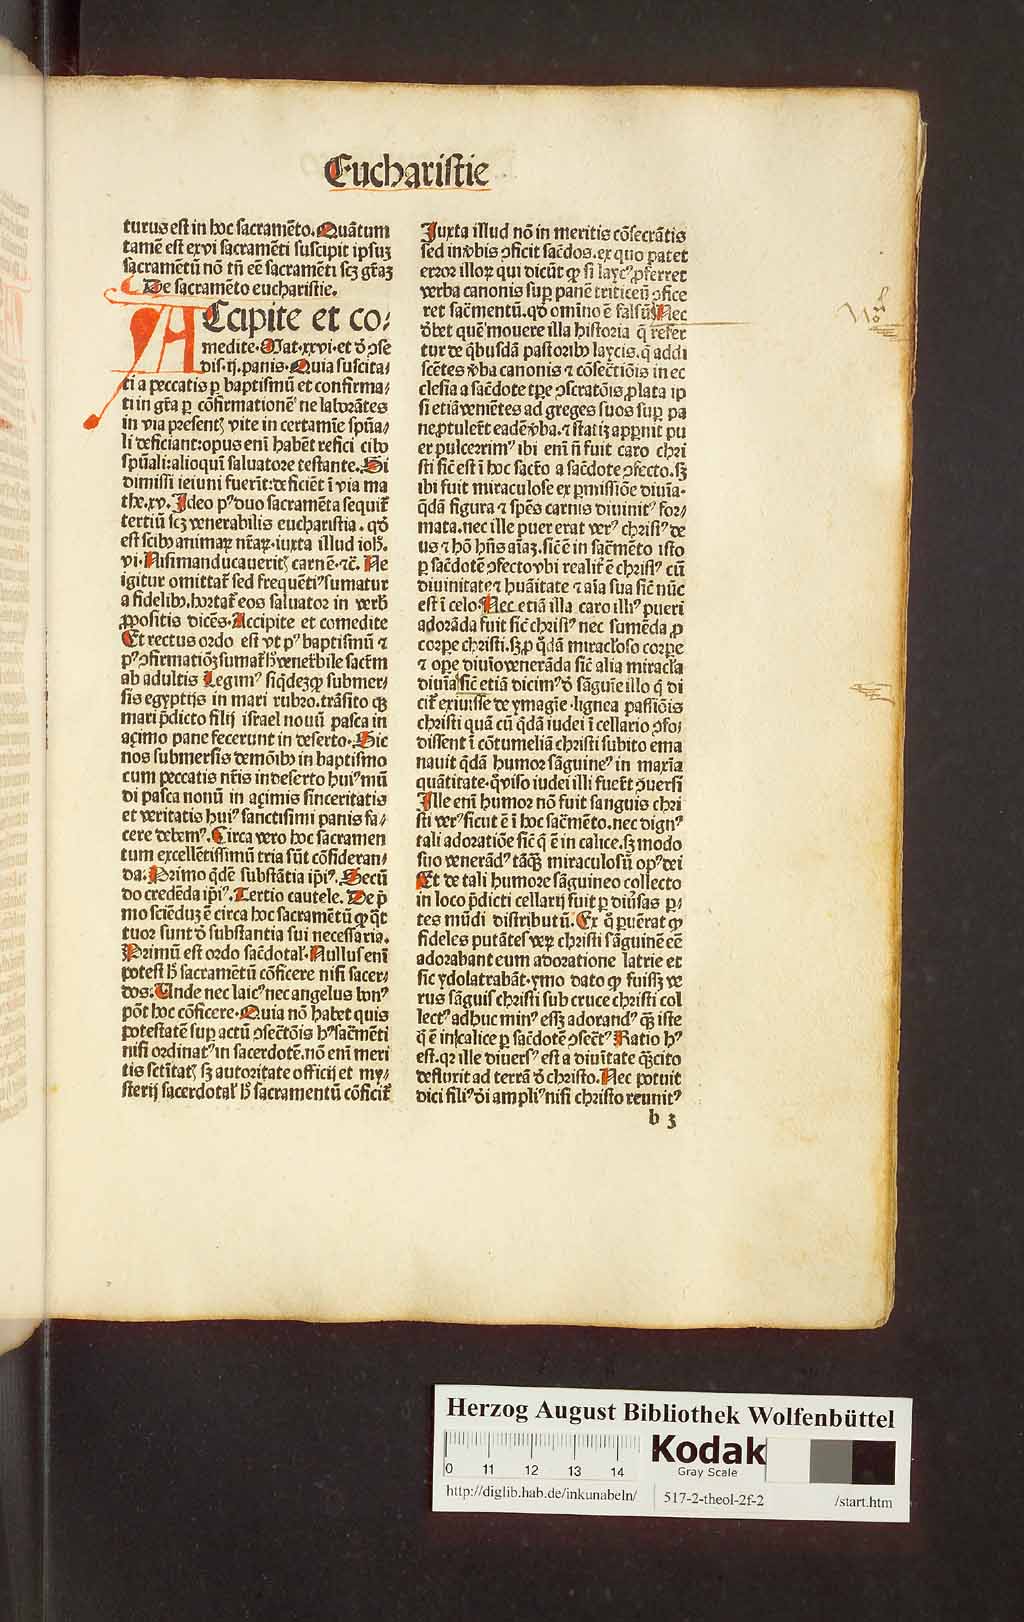 Eucharistie
turus est in hoc sacramēto. Quātum
tamē est ex vi sacramēti suscipit ipsuꝫ
sacramētū nō tn̄ eē sacramēti scꝫ gr̄aꝫ
De sacramēto eucharistie.
ACcipite et co⸗
medite. Mat. xxvi. et ꝺ̄ ↄse
dis. ij. panis. Quia suscita⸗
ti a peccatis ꝑ baptismū et confirma⸗
ti in gr̄a ꝑ cōfirmationē ne laborātes
in via presentꝭ vite in certamīe spūa⸗
li deficiant: opus enī habēt refici cibo
spūali: alioqui saluatore testante. Si
dimissi ieiuni fuerīt: deficiēt ī via ma
the. xv. Ideo pꝰ duo sacramēta sequit̄
tertiū scꝫ venerabilis eucharistia. qꝺ̄
est scibꝰ animaꝝ nr̄aꝝ. iuxta illud ioh̄.
vi. Nisi manducaueritꝭ carnē. ⁊c̄. Ne
igitur omittat̄ sed frequētiꝰ sumatur
a fidelibꝰ. hortat̄ eos saluator in verb̄
ꝓpositis dicēs. Accipite et comedite
Et rectus ordo est vt pꝰ baptismū ⁊
pꝰ ↄfirmatiōꝫ sumat̄ h̄ venerbile sacr̄m
ab adultis Legimꝰ siq̄deꝫ ꝙ submer⸗
sis egyptijs in mari rubro. trāsito qꝫ
mari p̄dicto filij israel nouū pasca in
açimo pane fecerunt in deserto. Sic
nos submersis demōibꝰ in baptismo
cum peccatis nr̄is in deserto huiꝰ mū
di pasca nonū in açimis sinceritatis
et veritatis huiꝰ sanctisimi panis fa⸗
cere debemꝰ. Circa vero hoc sacramen
tum excellētissimū tria sūt cōsideran⸗
da. Primo qd̄ē substātia ip̄iꝰ. Secū
do credēda ip̄iꝰ. Tertio cautele. De p̄
mo sciēduꝫ ē circa hoc sacramētū ꝙ q̄t
tuor sunt ꝺ̄ substantia sui necessaria.
Primū est ordo sac̄dotal̄. Nullus enī
potest h̄ sacramētū cōficere nisi sacer⸗
dos. Unde nec laicꝰ nec angelus bonꝰ
pōt hoc cōficere. Quia nō habet quis
potestatē suꝑ actū ↄsectōis hꝰ sac̄mēti
nisi ordinatꝰ in sacerdotē. nō enī meri
tis sctītatꝭ sꝫ autoritate officij et my⸗
sterij sacerdotal̄ h̄ sacramentū cōficit̄
Juxta illud nō in meritis cōsecrātis
sed in v̄bis ↄficit sac̄dos. ex quo patet
error illoꝝ qui dicūt ꝙ si laycꝰ ꝓferret
verba canonis suꝑ panē triticeū ↄfice
ret sac̄mentū. qꝺ̄ omīno ē falsū Nec
ꝺ̄bet quē mouere illa historia q̄ refer
tur de q̄busdā pastoribꝰ laycis. q̄ addi
scētes v̄ba canonis ⁊ cōsectiōis in ec
clesia a sac̄dote tꝑe ↄscratōis ꝓlata ip
si etiā veniētes ad greges suos suꝑ pa
ne ꝓtulert eadē v̄ba. ⁊ statiꝫ apparuit pu
er pulcerrimꝰ ibi enī n̄ fuit caro chri
sti sic̄ est ī hoc sacr̄o a sac̄dote ↄfecto. sꝫ
ibi fuit miraculose ex ꝑmissiōe diuīa.
qd̄ā figura ⁊ spēs carnis diuinitꝰ for⸗
mata. nec ille puer erat verꝰ christꝰ de
us ⁊ hō hn̄s aīaꝫ. sic̄ ē in sac̄mēto isto
ꝑ sac̄dotē ↄfecto vbi realit̄ ē christꝰ cū
diuinitate ⁊ huāitate ⁊ aīa sua sic̄ nūc
est ī celo. Nec etiā illa caro illiꝰ pueri
adorāda fuit sic̄ christꝰ nec sumēda ꝓ
corꝑe christi. sꝫ ꝓ qd̄ā miracl̄oso corꝑe
⁊ oꝑe diuīo venerāda sic̄ alia miracl̄a
diuīa sic̄ etiā dicimꝰ ꝺ̄ sāguīe illo q̄ di
cit̄ exiuisse de ymagīe. lignea passiōis
christi quā cū qd̄ā iudei ī cellario ↄfo⸗
dissent ī cōtumeliā christi subito ema
nauit qd̄ā humor sāguineꝰ in maxīa
quātitate. qͦ viso iudei illi fuer̄t ↄuersi
Ille enī humor nō fuit sanguis chri
sti verꝰ sicut ē ī hoc sac̄mēto. nec dignꝰ
tali adoratiōe sic̄ q̄ ē in calice. sꝫ modo
suo venerādꝰ tāqꝫ miraculosū opꝰ dei
Et de tali humore sāguineo collecto
in loco p̄dicti cellarij fuit ꝑ diuersas ꝑ⸗
tes mūdi distributū. Ex q̄ ꝓuērat ꝙ
fideles putātes verꝝ christi sāguinē eē
adorabant eum adoratione latrie et
sic ydolatrabāt. ymo dato ꝙ fuissꝫ ve
rus sāguis christi sub cruce christi col
lectꝰ adhuc minꝰ essꝫ adorandꝰ qꝫ iste
q̄ ē in calice ꝑ sac̄dotē ↄsectꝰ Ratio hꝰ
est. qꝛ ille diuersꝰ est a diuītate qꝫcito
defluxit ad terrā ꝺ̄ christo. Nec potuit
dici filiꝰ ꝺ̄i ampliꝰ nisi christo reunitꝰ
b 3
Herzog August Bibliothek Wolfenbüttel
0 11 12 13 14
Kodak
Gray Scale
http://diglib.hab.de/inkunabeln/
517-2-theol-2f-2
/start.htm